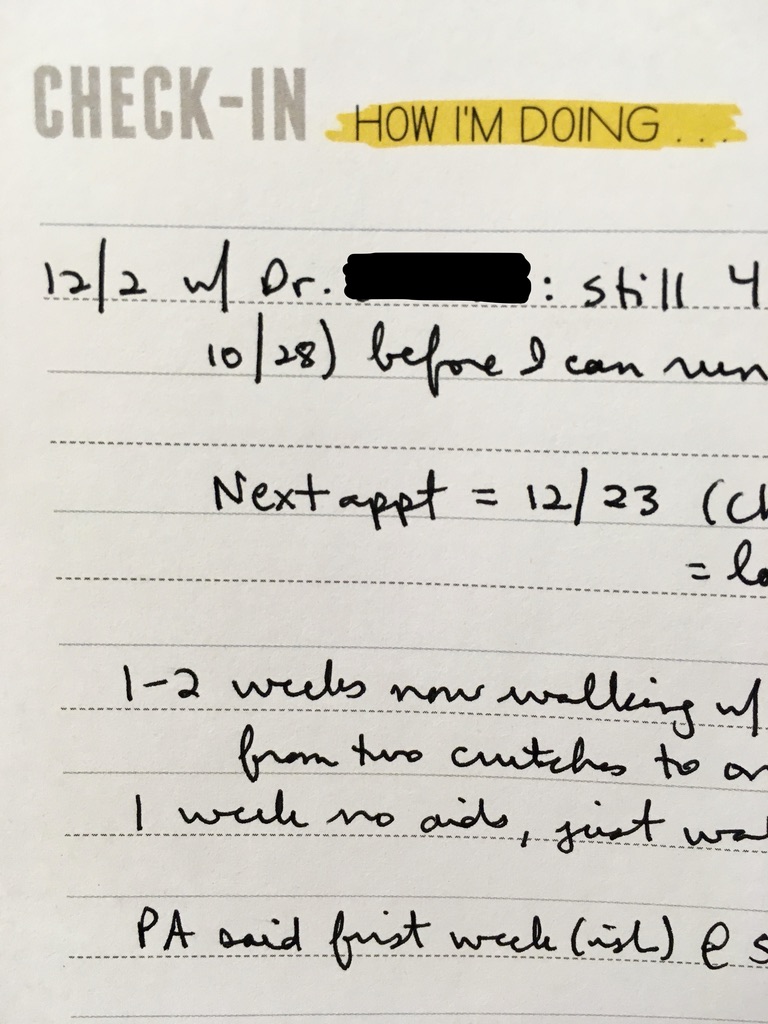 CHECK-IN HOW I'M DOING ...
12/2 w/ Dr. : still 4
10/28) before I can run
Next appt = 12/23 (ch
= lo
1-2 weeks now walking w/
from two crutches to on
1 week no aids, just wal
PA said first week (ish) @ s